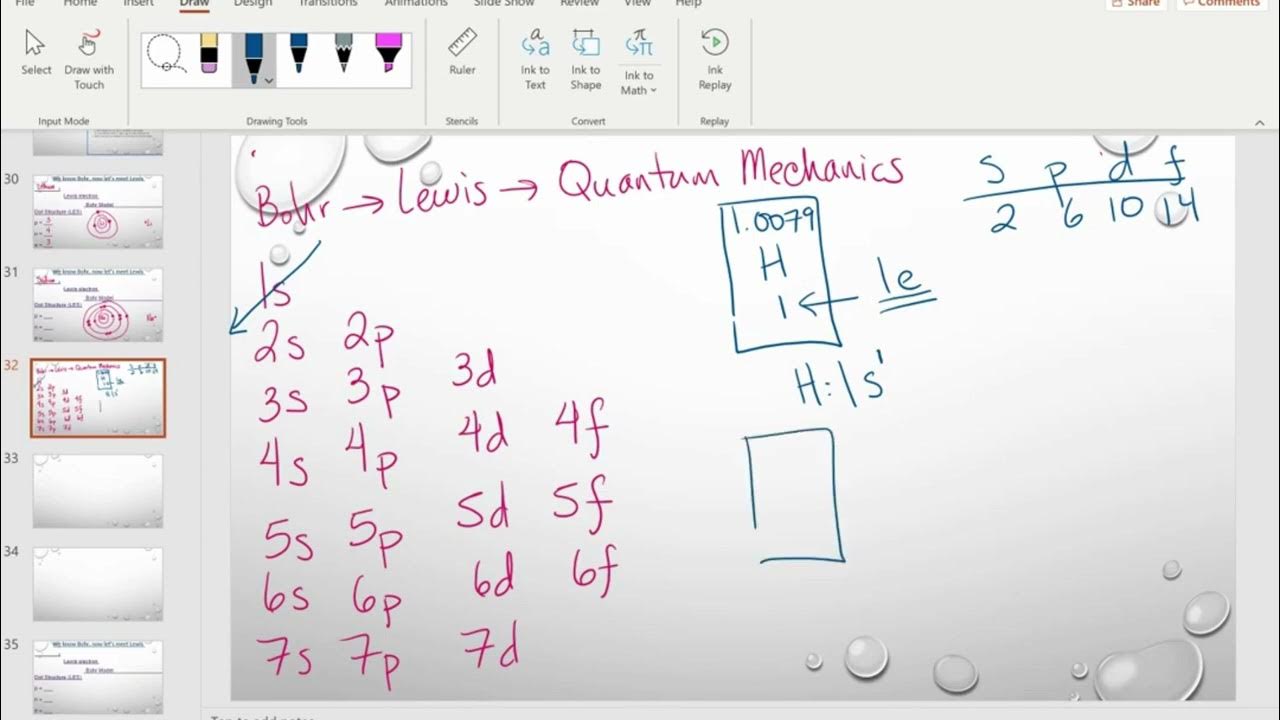 File Home Insert Draw Design Transitions Animations Slide Show Review View Help Share Comments
Select Draw with Touch Ruler Ink to Text Ink to Shape Ink to Math Ink Replay
Input Mode Drawing Tools Stencils Convert Replay
30
We know Bohr, now let's meet Lewis
Lewis electron
Bohr Model
Dot Structure (LES)
31
We know Bohr, now let's meet Lewis
Lewis electron
Bohr Model
Dot Structure (LES)
32
33
34
35
We know Bohr, now let's meet Lewis
Lewis electron
Bohr Model
Dot Structure (LES)
Bohr → Lewis → Quantum Mechanics
s p d f
2 6 10 14
1.0079
H
1 ← 1e
H: 1s¹
1s
2s 2p
3s 3p 3d
4s 4p 4d 4f
5s 5p 5d 5f
6s 6p 6d 6f
7s 7p 7d
Tap to add notes